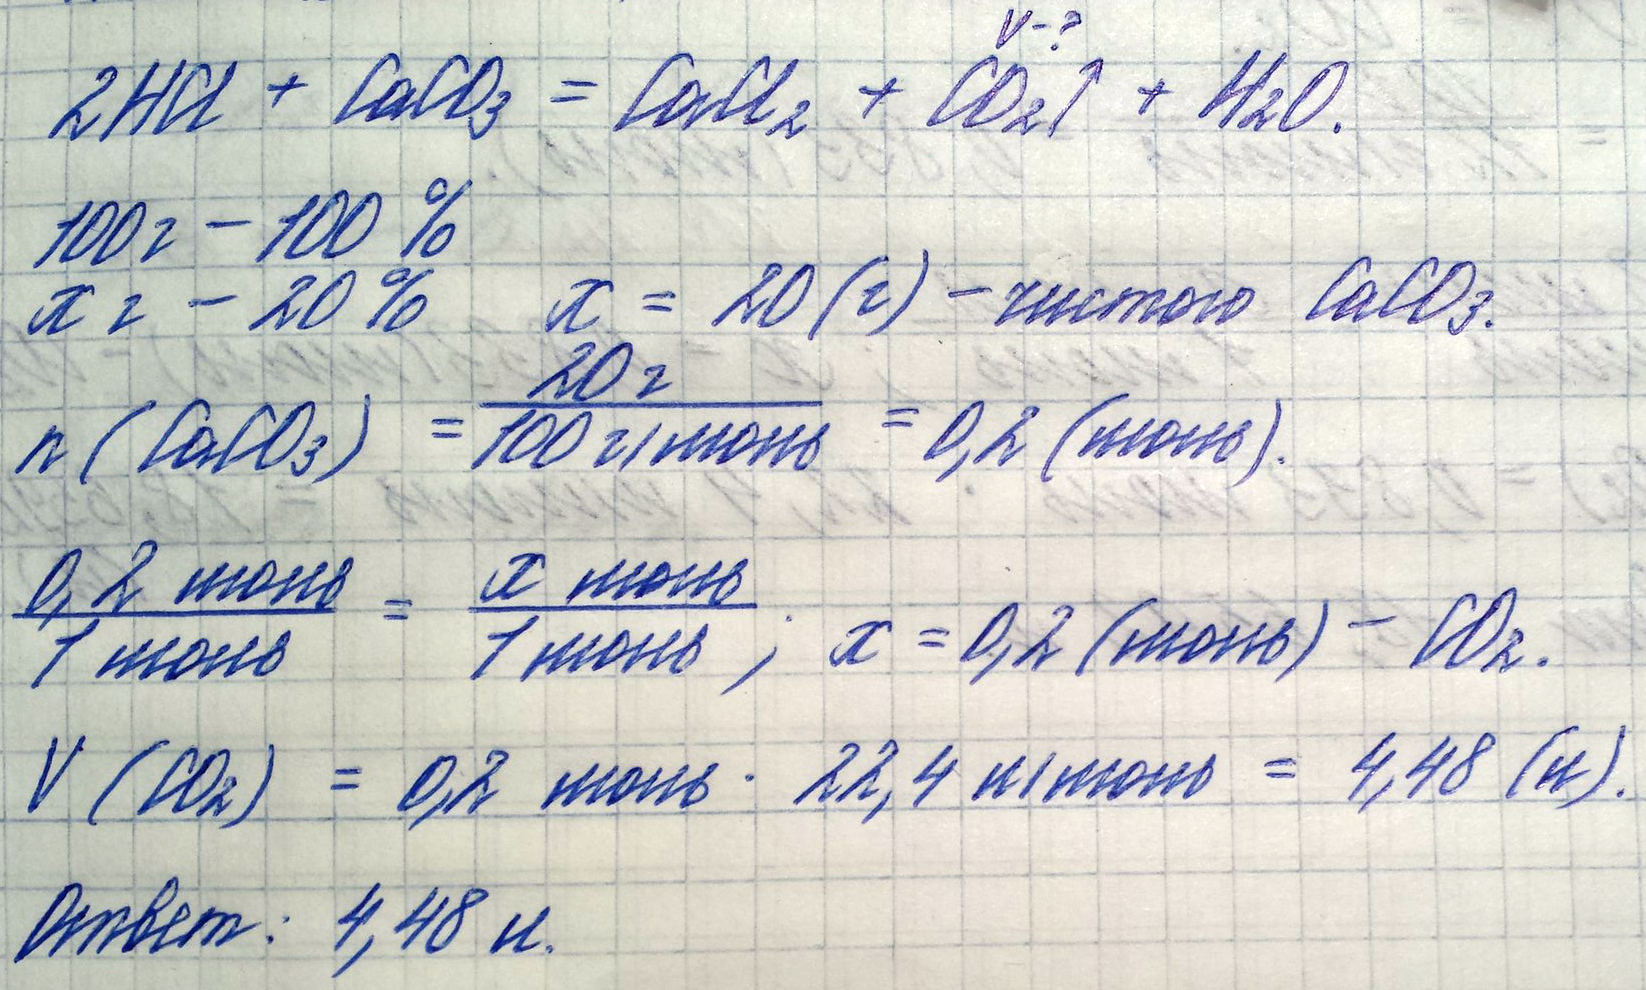 V-?
2HCl + CaCO3 = CaCl2 + CO2↑ + H2O.
100г - 100 %
x г - 20 % x = 20 (г) - чистого CaCO3.
n (CaCO3) = 20 г / 100 г/моль = 0,2 (моль).
0,2 моль / 1 моль = x моль / 1 моль ; x = 0,2 (моль) - CO2.
V (CO2) = 0,2 моль · 22,4 л/моль = 4,48 (л).
Ответ: 4,48 л.